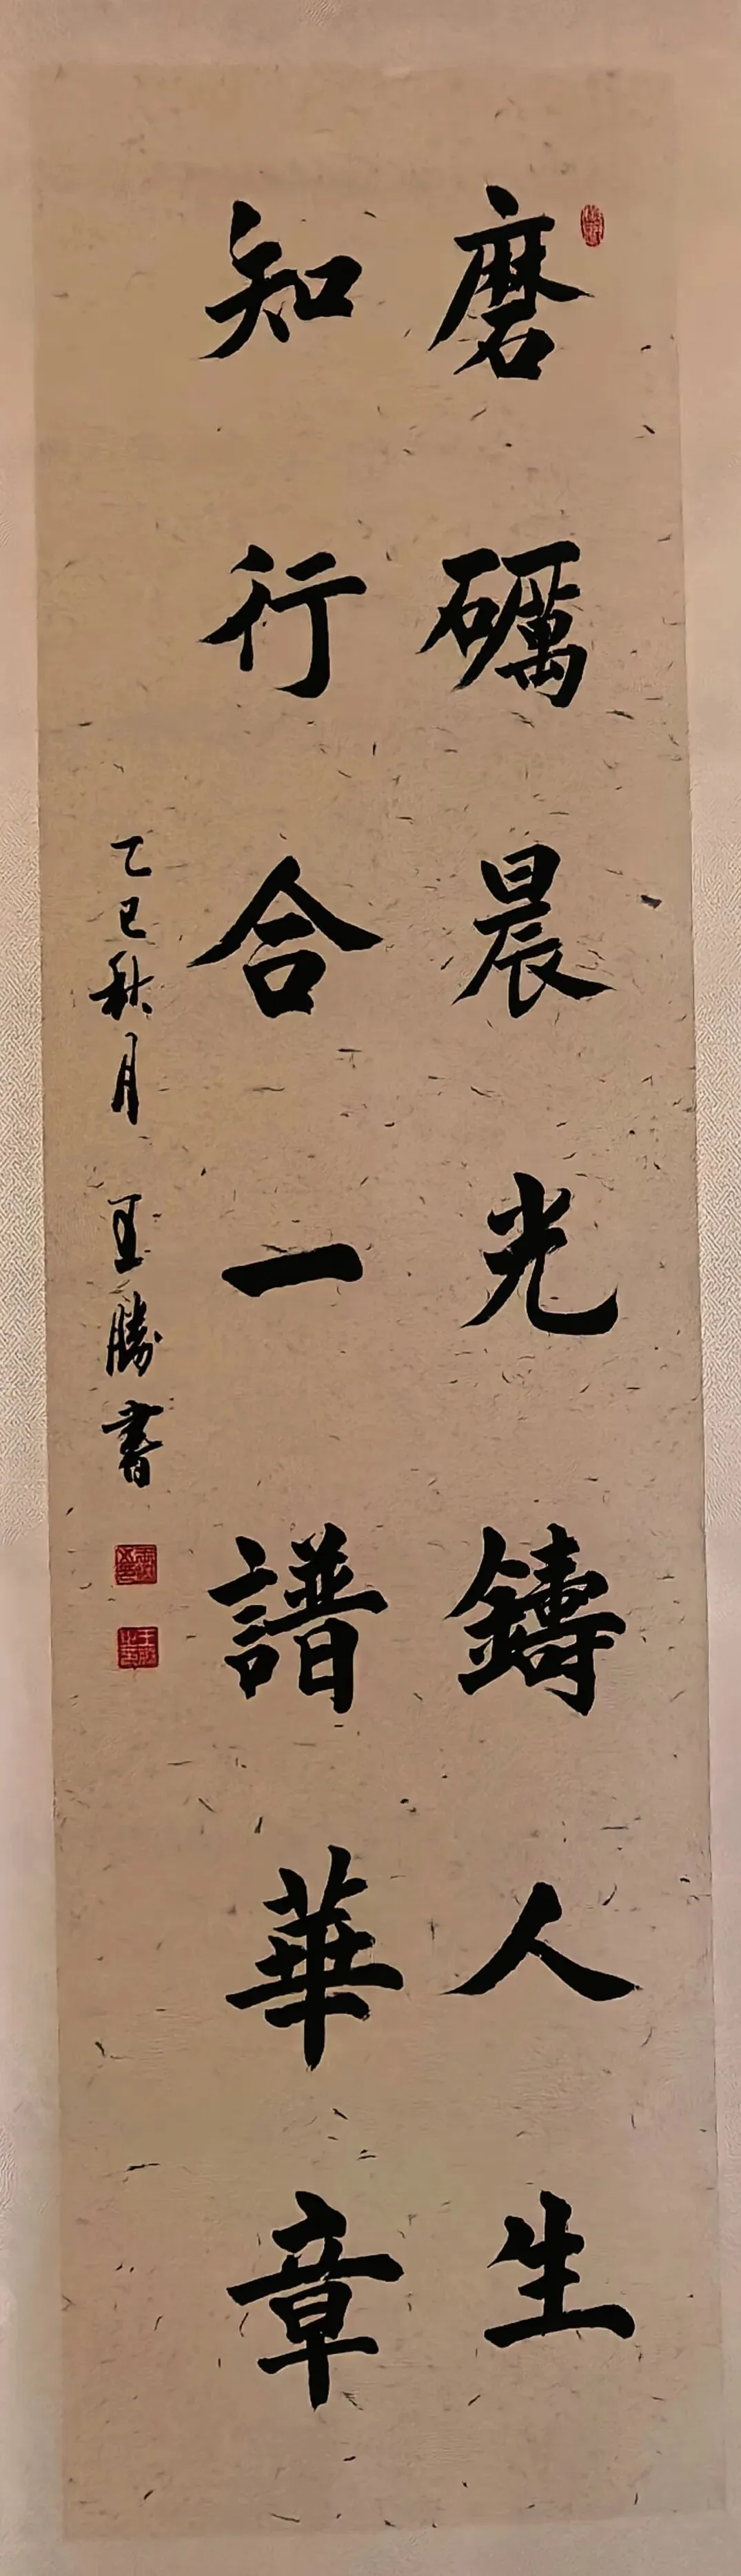 磨礪晨光鑄人生
知行合一譜華章
乙巳秋月 王勝書